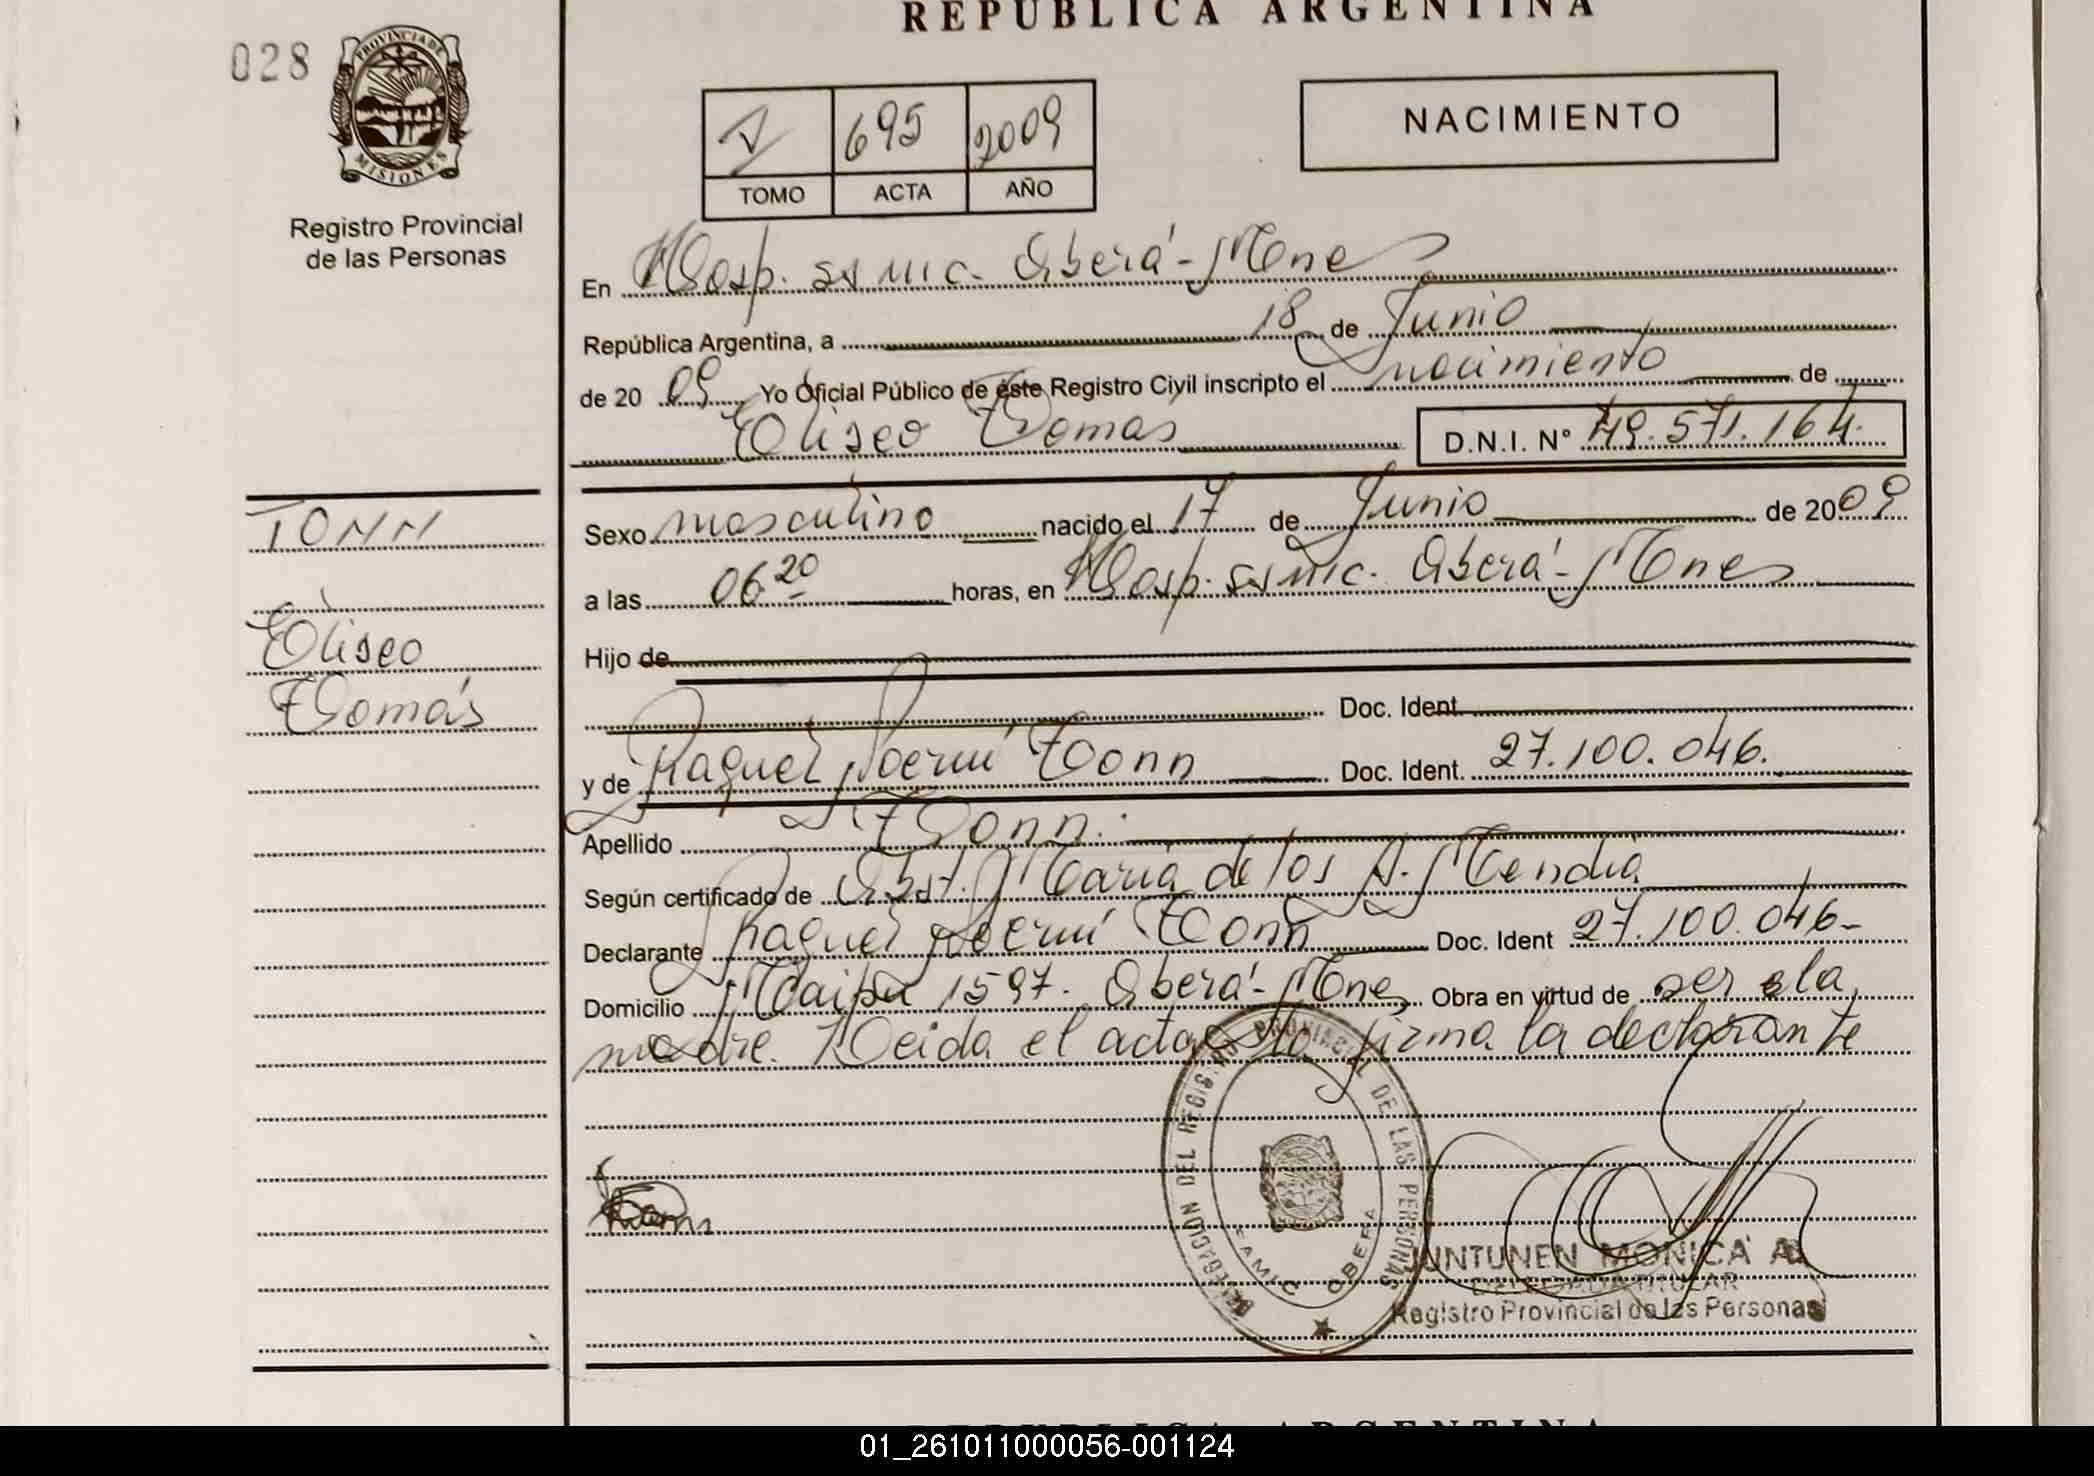 REPUBLICA ARGENTINA
028
PROVINCIA DE
MISIONES
Registro Provincial
de las Personas
695 2009
TOMO ACTA AÑO
NACIMIENTO
En Hosp. SAMIC. Oberá - Mnes
República Argentina, a 18 de Junio
de 20 09 Yo Oficial Público de éste Registro Civil inscripto el nacimiento de
Eliseo Tomás D.N.I. N° 49.571.164.
TONN
Eliseo
Tomás
Sexo masculino nacido el 17 de Junio de 2009
a las 06 20 horas, en Hosp. SAMIC. Oberá - Mnes
Hijo de
Doc. Ident.
y de Raquel Noemí Tonn Doc. Ident. 27.100.046.
Apellido Tonn.
Según certificado de Obst. María de los A. Mendia
Declarante Raquel Noemí Tonn Doc. Ident 27.100.046-
Domicilio Maipu 1597. Oberá - Mnes Obra en virtud de ser la
madre. Leida el acta firma la declarante
DELEGACION DEL REGISTRO PROVINCIAL DE LAS PERSONAS
SAMIC OBERA
JUNTUNEN MONICA A.
DELEGADA TITULAR
Registro Provincial de las Personas
REPUBLICA ARGENTINA
01_261011000056-001124